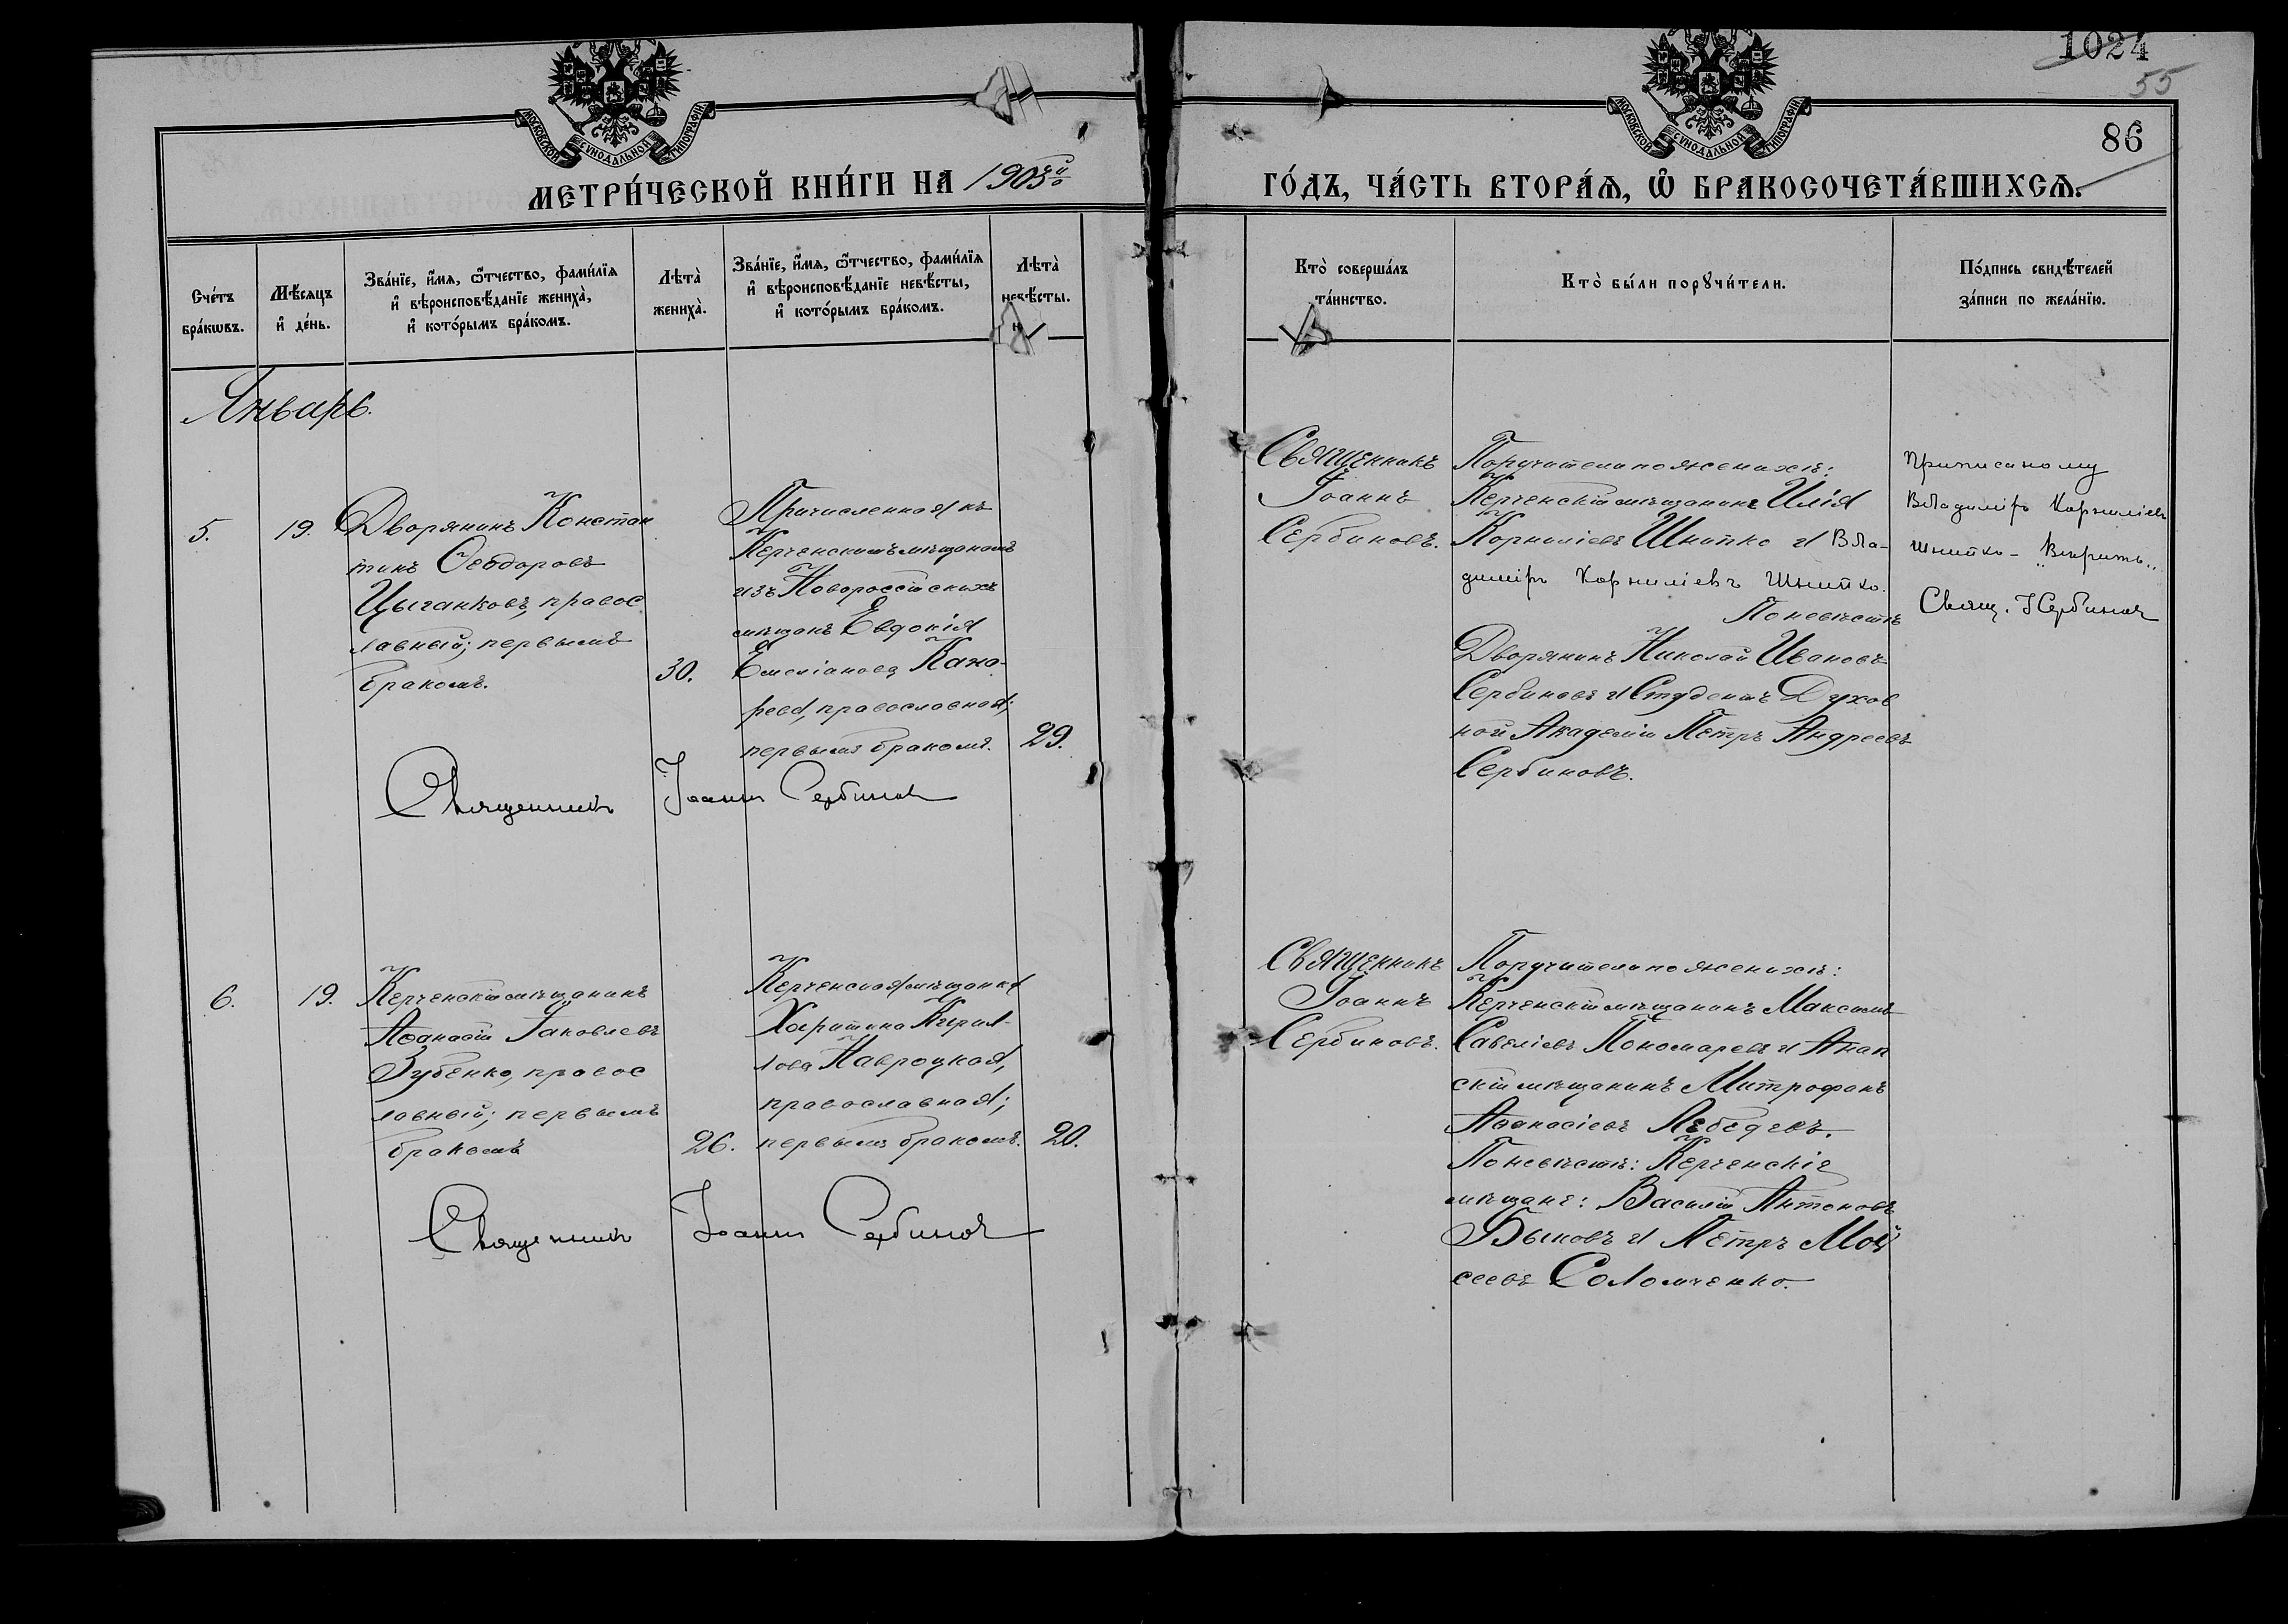 1024
55
86
МОСКОВСКОЙ СУНОДАЛЬНОЙ ТИПОГРАФІИ
МОСКОВСКОЙ СУНОДАЛЬНОЙ ТИПОГРАФІИ
МЕТРИ́ЧЕСКОЙ КНИ́ГИ НА 1903й
ГО́ДЪ, ЧА́СТЬ ВТОРА́Ѧ, Ѽ БРАКОСОЧЕТА́ВШИХСѦ.
Сче́тъ
бра́кѡвъ.
Мѣ́сяцъ
и҆ де́нь.
Зва́нїе, и҆́мѧ, ѻ҆́тчество, фами́лїѧ
и҆ вѣроисповѣ́данїе жениха̀,
и҆ кото́рымъ бра́комъ.
Лѣта̀
жениха̀.
Зва́нїе, и҆́мѧ, ѻ҆́тчество, фами́лїѧ
и҆ вѣроисповѣ́данїе невѣ́сты,
и҆ кото́рымъ бра́комъ.
Лѣта̀
невѣ́сты.
Кто̀ соверша́лъ
та́инство.
Кто̀ бы́ли порꙋчи́тели.
По́дпись свидѣ́телей
за́писи по жела́нїю.
Январь.
5.
19.
Дворянинъ Констан
тинъ Ѳеодоровъ
Цыганковъ, правос
лавный; первымъ
бракомъ.
30.
Причисленная къ
Керченскимъ мѣщанамъ
изъ Новороссійскихъ
мѣщанъ Евдокія
Емеліанова
православная;
первымъ бракомъ.
29.
Священникъ Іоаннъ Сербиновъ
Священникъ
Іоаннъ
Сербиновъ.
Поручители по женихѣ:
Керченскій мѣщанинъ Илія
Корниліевъ Шнипко и Вла-
диміръ Корниліевъ Шнипко.
По невѣстѣ
Дворянинъ Николай Ивановъ
Сербиновъ и Студентъ Духов
ной Академіи Петръ Андреевъ
Сербиновъ.
Приписаному
Владиміръ Корниліевъ
Шнипко - "Вѣрить"
Свящ. І Сербиновъ
6.
19.
Керченскій мѣщанинъ
Аѳанасій Іаковлевъ
Зубенко, правос
лавный; первымъ
бракомъ
26.
Керченская мѣщанка
Харитина Кирил-
лова Навроцкая,
православная;
первымъ бракомъ.
20.
Священникъ Іоаннъ Сербиновъ
Священникъ
Іоаннъ
Сербиновъ.
Поручители по женихѣ:
Керченскій мѣщанинъ Максимъ
Савеліевъ Пономаревъ и Анап
скій мѣщанинъ Митрофанъ
Аѳанасіевъ Лебедевъ.
По невѣстѣ: Керченскіе
мѣщане: Василій Антоновъ
Быковъ и Петръ Мои
сеевъ Соломченко.